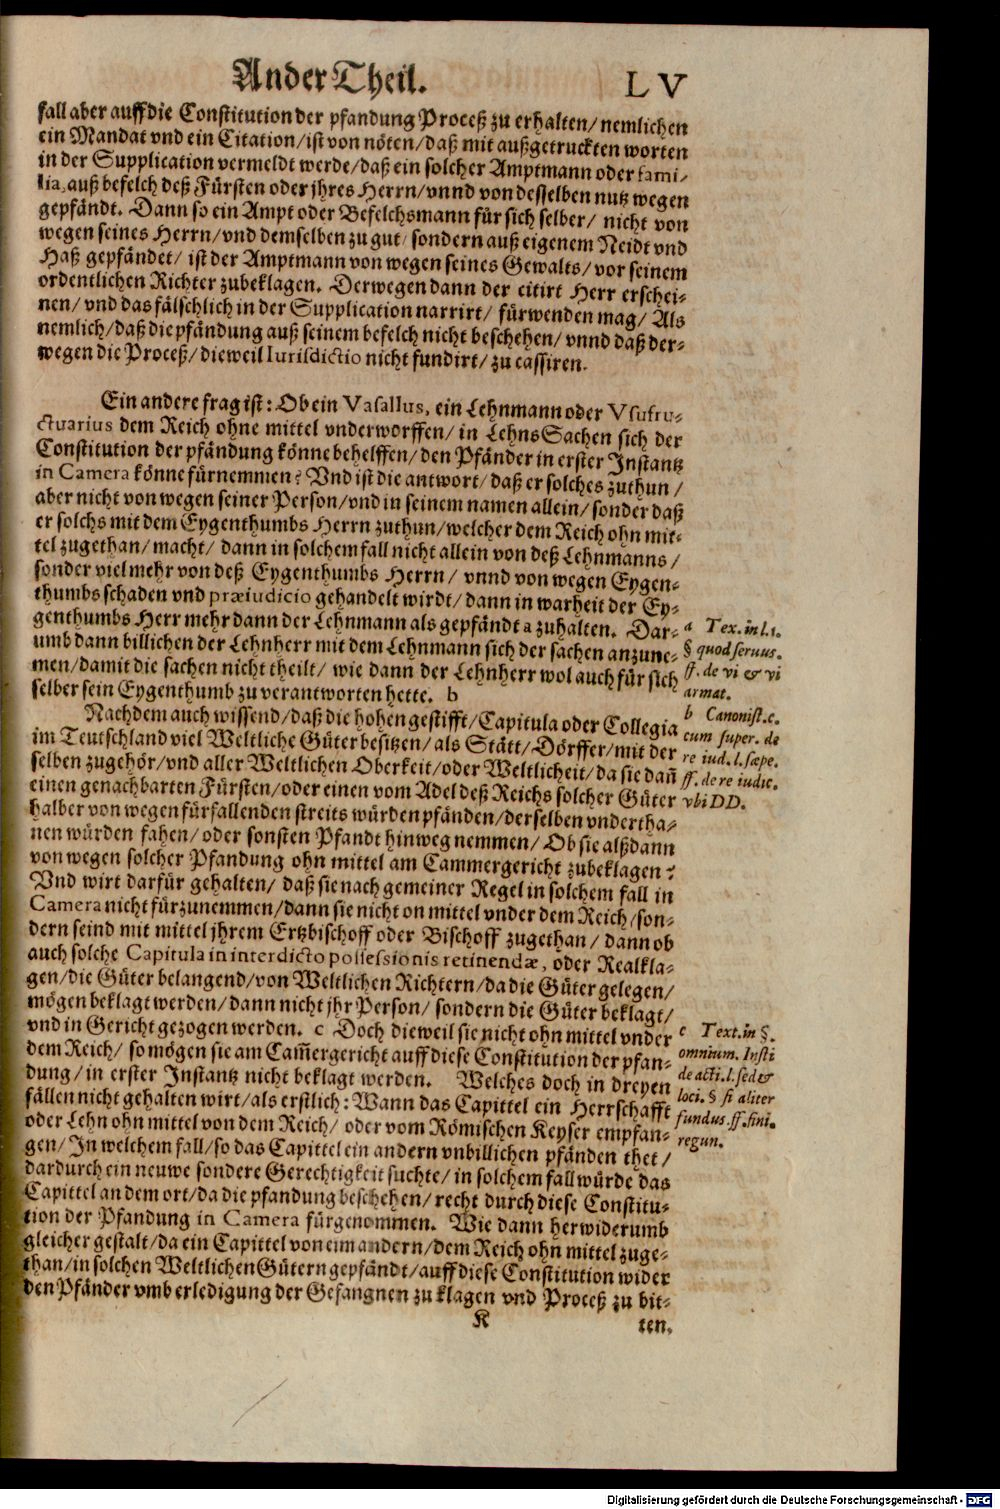 Ander Theil. LV
fall aber auff die Constitution der pfandung Proceß zu erhalten/ nemlichen
ein Mandat vnd ein Citation/ ist von nöten/ daß mit außgetruckten worten
in der Supplication vermeldt werde/ daß ein solcher Amptmann oder fami-
lia, auß befelch deß Fürsten oder jhres Herrn/ vnnd von desselben nutz wegen
gepfändt. Dann so ein Ampt oder Befelchsmann für sich selber/ nicht von
wegen seines Herrn/ vnd demselben zu gut/ sondern auß eigenem Neidt vnd
Haß gepfändet/ ist der Amptmann von wegen seines Gewalts/ vor seinem
ordentlichen Richter zubeklagen. Derwegen dann der citirt Herr erschei-
nen/ vnd das fälschlich in der Supplication narrirt/ fürwenden mag/ Als
nemlich/ daß die pfändung auß seinem befelch nicht beschehen/ vnnd daß der-
wegen die Proceß/ dieweil Iurisdictio nicht fundirt/ zu cassiren.
Ein andere frag ist: Ob ein Vasallus, ein Lehnmann oder Vsufru-
ctuarius dem Reich ohne mittel vnderworffen/ in LehnsSachen sich der
Constitution der pfändung könne behelffen/ den Pfänder in erster Instantz
in Camera könne fürnemmen? Vnd ist die antwort/ daß er solches zuthun/
aber nicht von wegen seiner Person/ vnd in seinem namen allein/ sonder daß
er solchs mit dem Eygenthumbs Herrn zuthun/ welcher dem Reich ohn mit-
tel zugethan/ macht/ dann in solchem fall nicht allein von deß Lehnmanns/
sonder viel mehr von deß Eygenthumbs Herrn/ vnnd von wegen Eygen-
thumbs schaden vnd præiudicio gehandelt wirdt/ dann in warheit der Ey-
genthumbs Herr mehr dann der Lehnmann als gepfändt a zuhalten. Dar-
umb dann billichen der Lehnherr mit dem Lehnmann sich der sachen anzune-
men/ damit die sachen nicht theilt/ wie dann der Lehnherr wol auch für sich
selber sein Eygenthumb zu verantworten hette. b
a Tex. in l. 1.
§ quod seruus.
ff. de vi & vi
armat.
b Canonist. c.
cum super. de
re iud. l. sæpe.
ff. de re iudic.
vbi DD.
Nachdem auch wissend/ daß die hohen gestifft/ Capitula oder Collegia
im Teutschland viel Weltliche Güter besitzen/ als Stätt/ Dörffer/ mit der
selben zugehör/ vnd aller Weltlichen Oberkeit/ oder Weltlicheit/ da sie dañ
einen genachbarten Fürsten/ oder einen vom Adel deß Reichs solcher Güter
halber von wegen fürfallenden streits würden pfänden/ derselben vndertha-
nen würden fahen/ oder sonsten Pfandt hinweg nemmen/ Ob sie alßdann
von wegen solcher Pfandung ohn mittel am Cammergericht zubeklagen?
Vnd wirt darfür gehalten/ daß sie nach gemeiner Regel in solchem fall in
Camera nicht fürzunemmen/ dann sie nicht on mittel vnder dem Reich/ son-
dern seind mit mittel jhrem Ertzbischoff oder Bischoff zugethan/ dann ob
auch solche Capitula in interdicto possessionis retinendæ, oder Realkla-
gen/ die Güter belangend/ von Weltlichen Richtern/ da die Güter gelegen/
mögen beklagt werden/ dann nicht jhr Person/ sondern die Güter beklagt/
vnd in Gericht gezogen werden. c Doch dieweil sie nicht ohn mittel vnder
dem Reich/ so mögen sie am Cam̃ergericht auff diese Constitution der pfan-
dung/ in erster Instantz nicht beklagt werden. Welches doch in dreyen
fällen nicht gehalten wirt/ als erstlich: Wann das Capittel ein Herrschafft
oder Lehn ohn mittel von dem Reich/ oder vom Römischen Keyser empfan-
gen/ In welchem fall/ so das Capittel ein andern vnbillichen pfänden thet/
dardurch ein neuwe sondere Gerechtigkeit suchte/ in solchem fall würde das
Capittel an dem ort/ da die pfandung beschehen/ recht durch diese Constitu-
tion der Pfandung in Camera fürgenommen. Wie dann herwiderumb
gleicher gestalt/ da ein Capittel von eim andern/ dem Reich ohn mittel zuge-
than/ in solchen Weltlichen Gütern gepfändt/ auff diese Constitution wider
den Pfänder vmb erledigung der Gefangnen zu klagen vnd Proceß zu bit-
c Text. in §.
omnium. Insti
de acti. l. sed &
loci. § si aliter
fundus. ff. fini.
regun.
K ten.
Digitalisierung gefördert durch die Deutsche Forschungsgemeinschaft - DFG